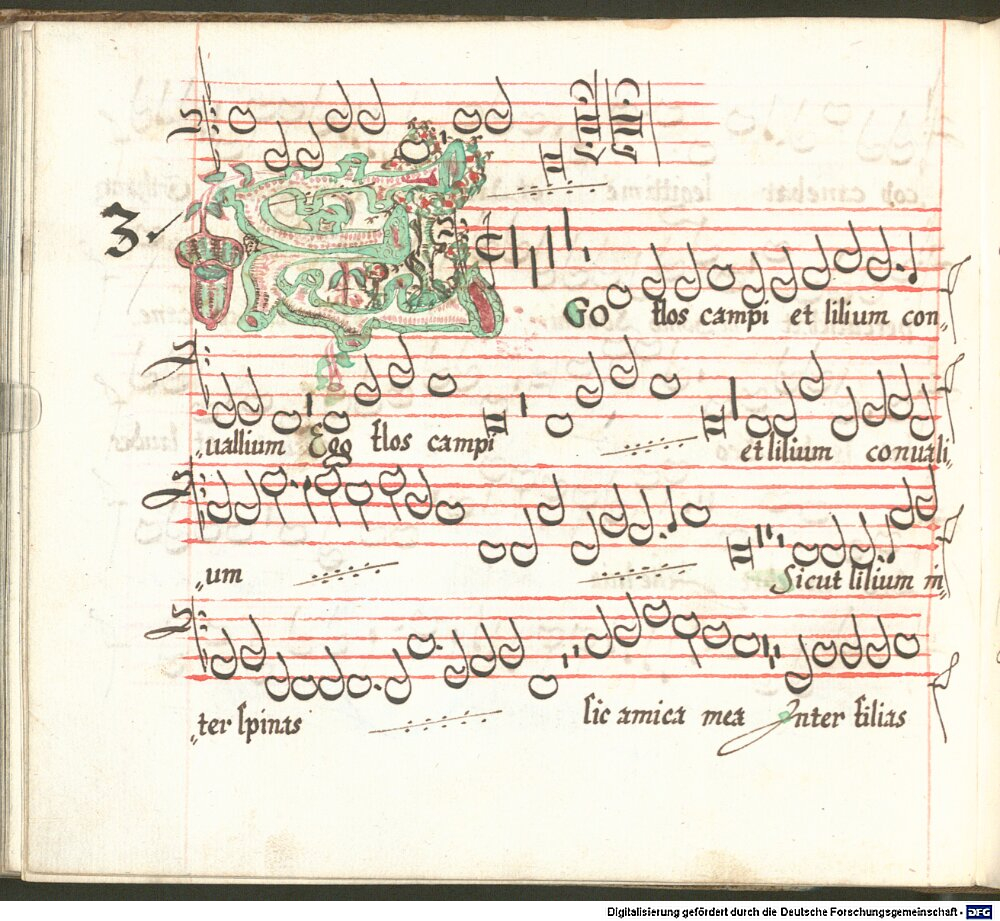 3.
Ego flos campi et lilium con„
„uallium Ego flos campi et lilium conualli„
„um Sicut lilium in„
„ter spinas sic amica mea Inter filias
Digitalisierung gefördert durch die Deutsche Forschungsgemeinschaft - DFG